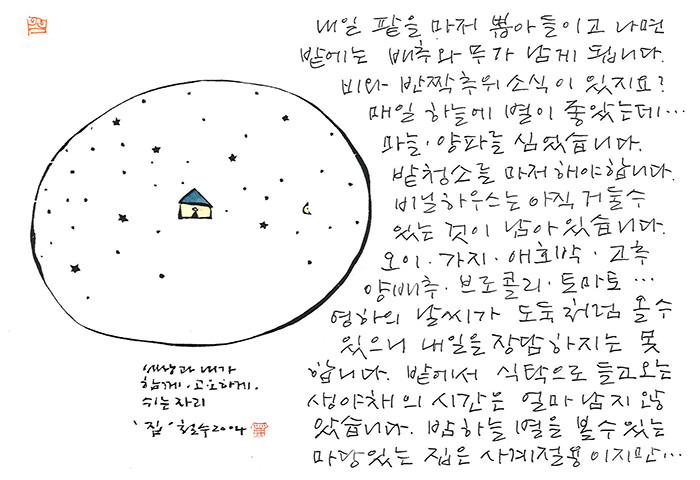 내일 팥을 마저 뽑아들이고 나면
밭에는 배추와 무가 남게 됩니다.
비와 반짝추위 소식이 있지요?
매일 하늘에 별이 좋았는데…
마늘·양파를 심었습니다.
밭청소를 마저 해야합니다.
비닐하우스는 아직 거둘수
있는 것이 남아 있습니다.
오이·가지·애호박·고추
양배추·브로콜리·토마토…
영하의 날씨가 도둑처럼 올 수
있으니 내일을 장담하지는 못
합니다. 밭에서 식탁으로 들고오는
생야채의 시간은 얼마 남지 않
았습니다. 밤하늘 별을 볼 수 있는
마당있는 집은 사계절용이지만…
세상과 내가
함께·고요하게·
쉬는자리
'집' 철수2004